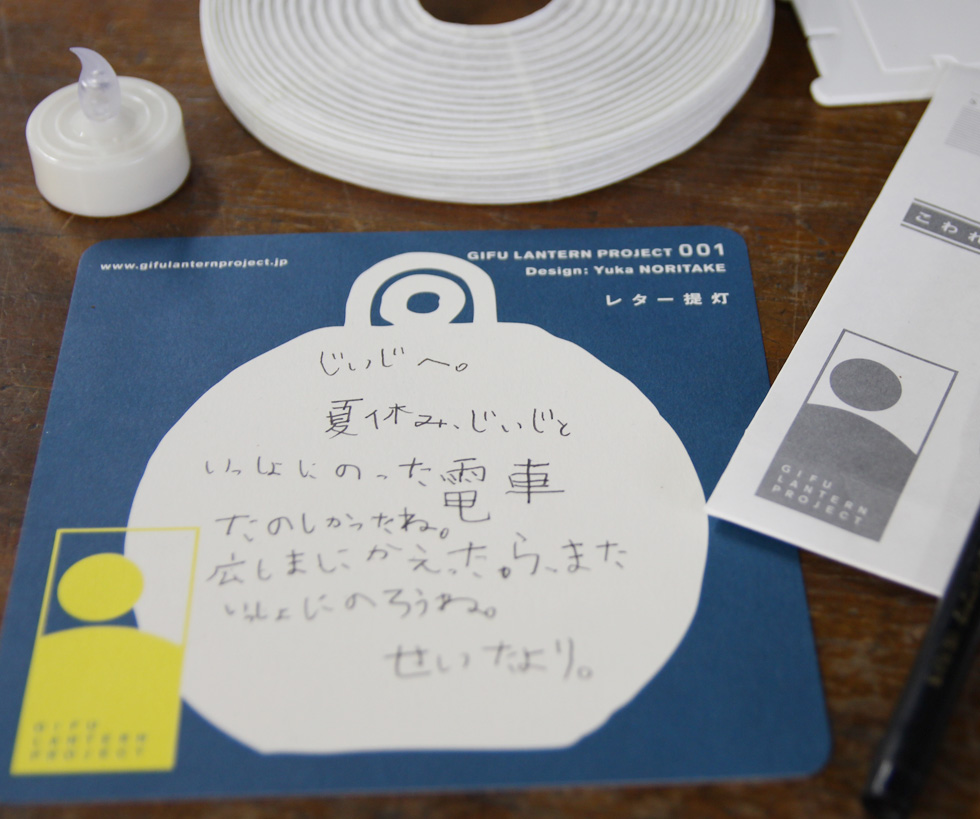 www.gifulanternproject.jp
GIFU LANTERN PROJECT 001
Design: Yuka NORITAKE
レター提灯
じいじへ。
夏休み、じいじと
いっしょにのった電車
たのしかったね。
広しまにかえったら、また
いっしょにのろうね。
せいたより。
GIFU
LANTERN
PROJECT
こわれ
GIFU
LANTERN
PROJECT